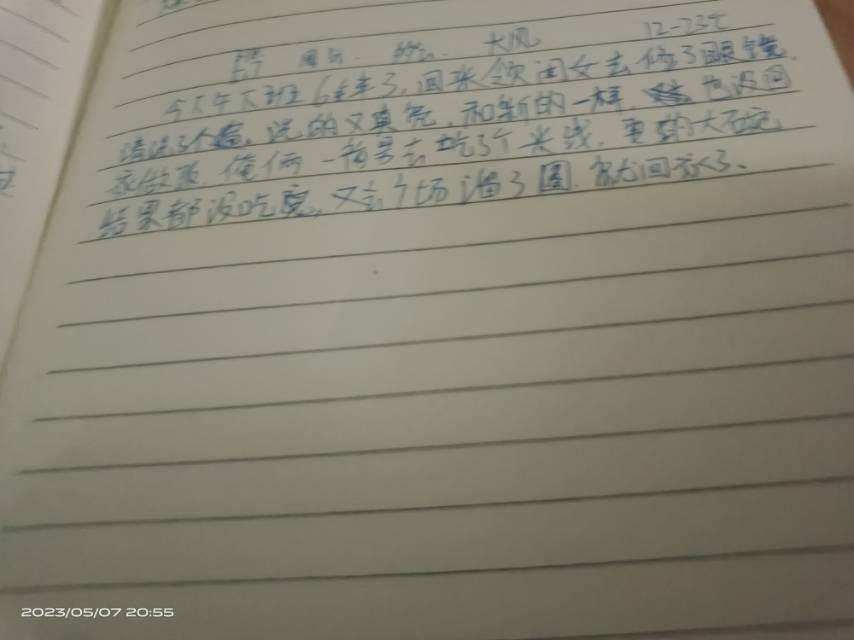 周 大风 12-23℃
今天午下班6点半了,回来领闺女去修了眼镜,
清洗了个 , 洗的又真亮,和新的一样, 也没回
家做饭,俺俩一前晃去吃了个米线,要的大石碗
结果都没吃完,又去广场溜了圈,就回家了、
2023/05/07 20:55